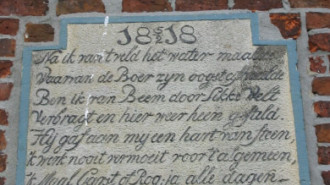 18 18
Na ik van t veld het water maalde
Waarvan de Boer zyn oogst
Ben ik van Beem door Sikke Velt
Verbragt en hier weer heen gesteld.
Hy gaf aan my een hart van steen
ik werk nooit vermoeit voor t algemeen,
'k Maal Garst of Rog; ja alle dagen